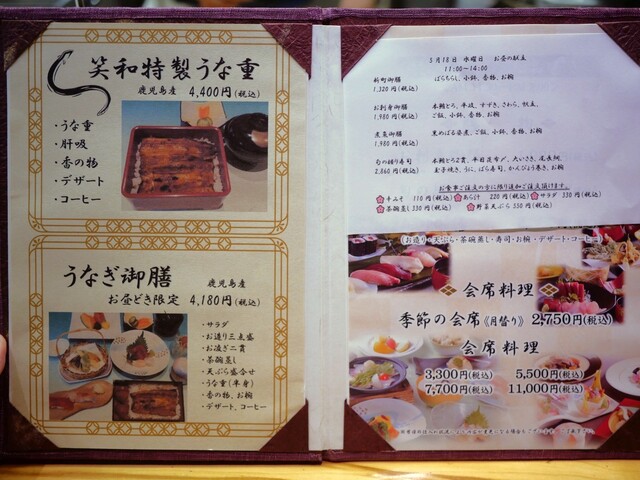 笑和特製うな重
鹿児島産 4,400円(税込)
・うな重
・肝吸
・香の物
・デザート
・コーヒー
うなぎ御膳
鹿児島産
お昼どき限定 4,180円(税込)
・サラダ
・お造り三点盛
・お凌ぎ二貫
・茶碗蒸し
・天ぷら盛合せ
・うな重(半身)
・香の物、お椀
・デザート、コーヒー
5月18日 水曜日 お昼の献立
11:00~14:00
新町御膳 ばらちらし、小鉢、香物、お椀
1,320円(税込)
お刺身御膳
1,980円(税込) ご飯、小鉢、香物、お椀
煮魚御膳 黒めばる姿煮、ご飯、小鉢、香物、お椀
1,980円(税込)
旬の握り寿司
2,860円(税込) 玉子焼き、うに、ばら寿司、かんぴょう巻き、お椀
お食事ご注文の方に限り追加ご注文頂けます。
辛みそ 110円(税込) あら汁 220円(税込) サラダ 330円(税込)
茶碗蒸し 330円(税込) 野菜天ぷら 550円(税込)
(お造り・天ぷら・茶碗蒸し・寿司・お椀・デザート・コーヒー)
会席料理
季節の会席《月替り》2,750円(税込)
会席料理
3,300円(税込) 5,500円(税込)
7,700円(税込) 11,000円(税込)